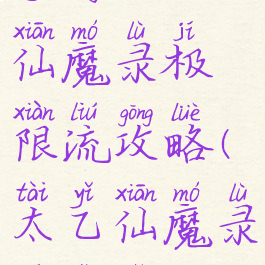 xiān mó lù jí
仙魔录极
xiàn liú gōng lüè
限流攻略(
tài yǐ xiān mó lù
太乙仙魔录